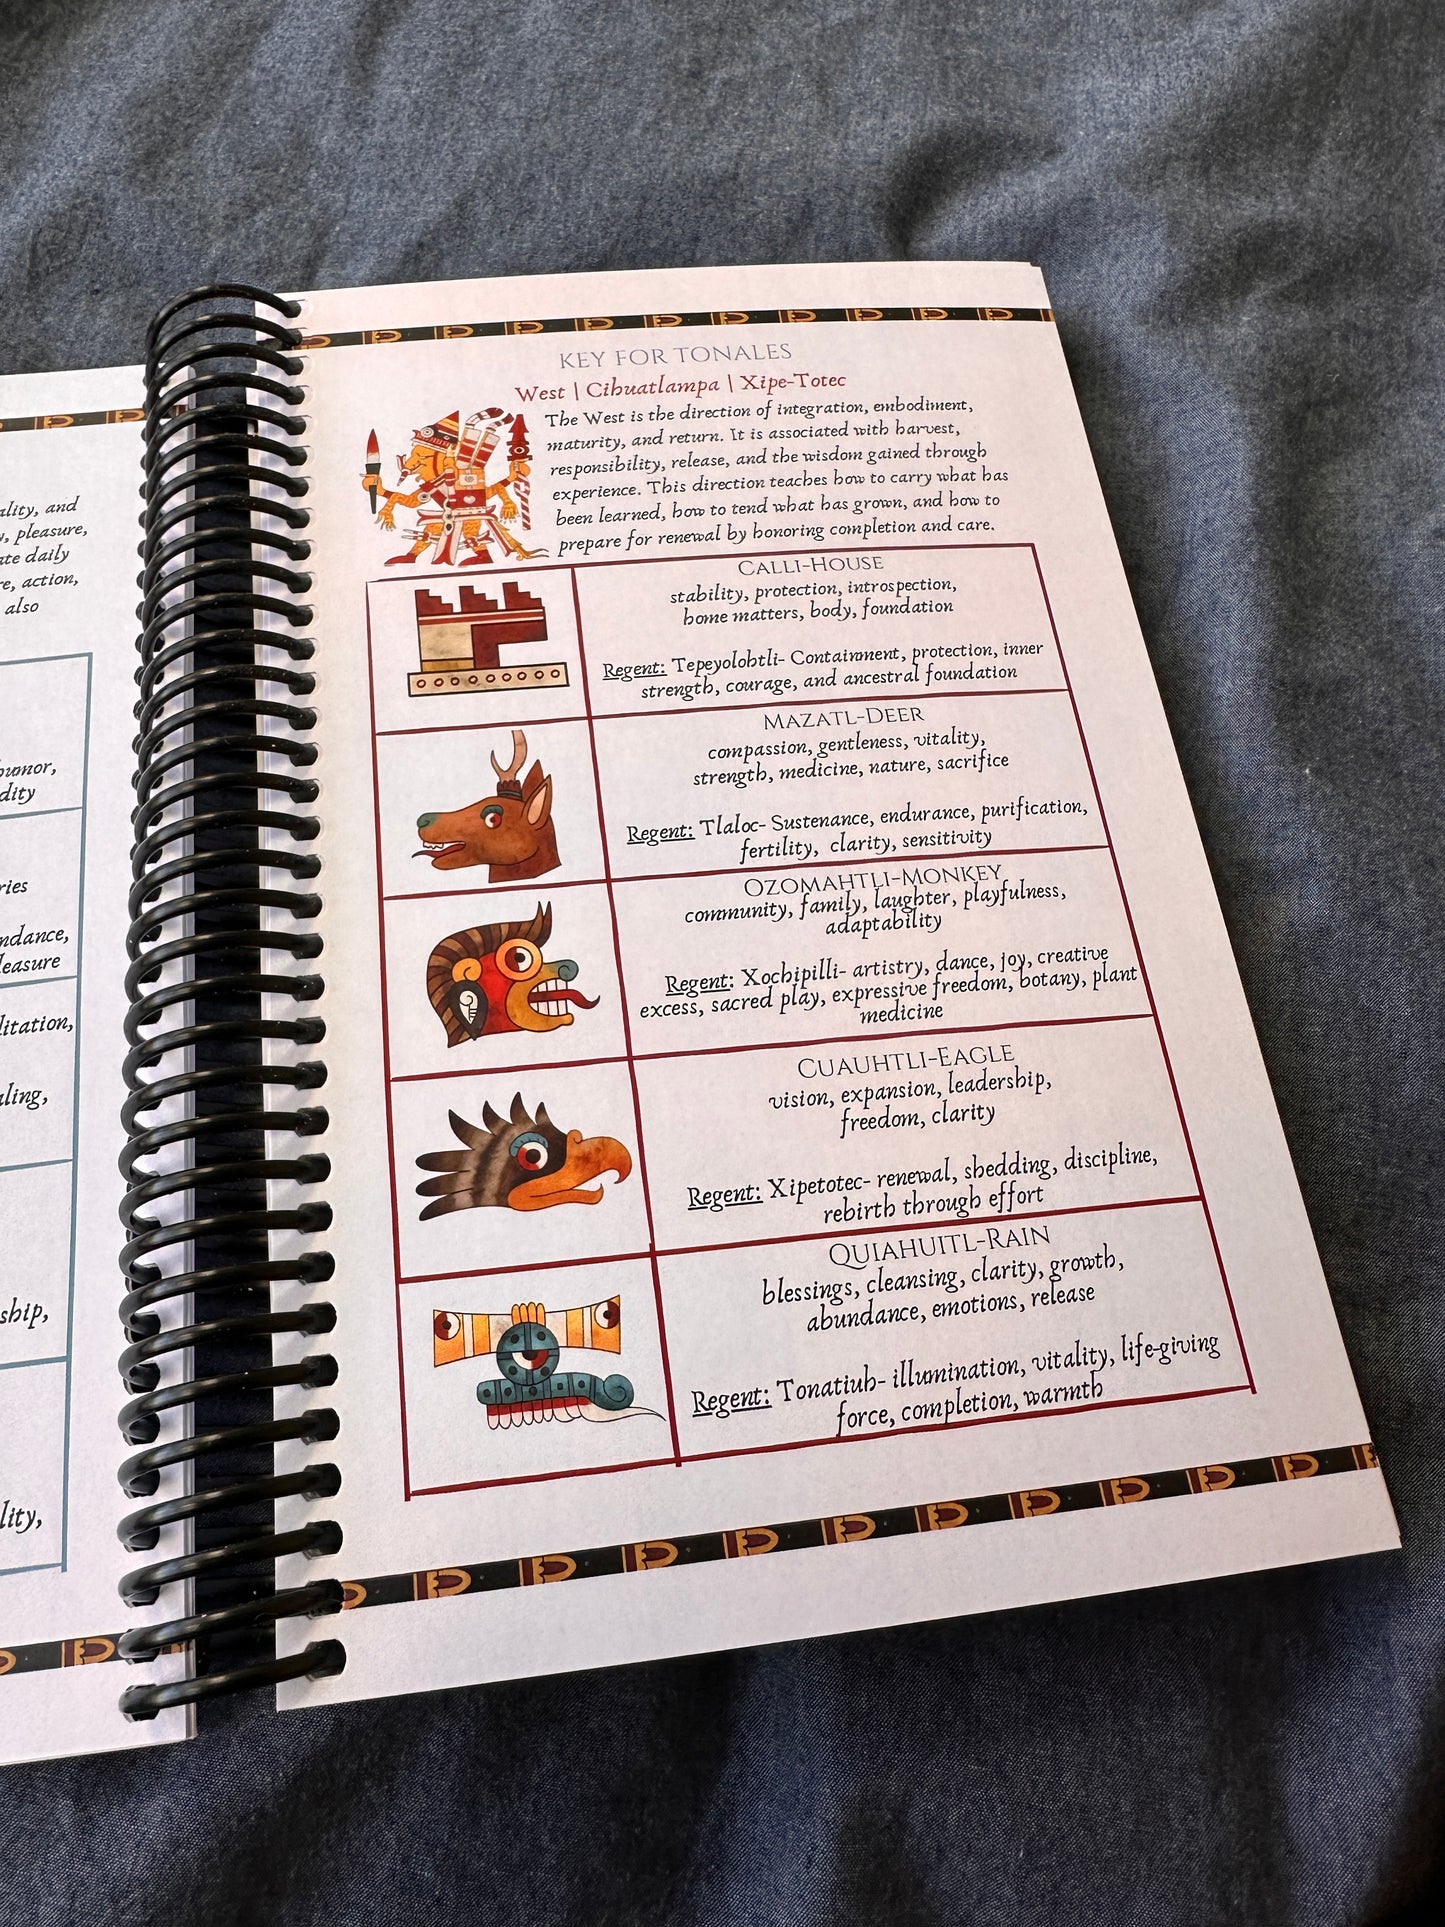 ality, and
, pleasure,
ate daily
re, action,
also
humor,
dity
ries
ndance,
leasure
litation,
ling,
ship,
lity,
KEY FOR TONALES
West | Cihuatlampa | Xipe-Totec
The West is the direction of integration, embodiment,
maturity, and return. It is associated with harvest,
responsibility, release, and the wisdom gained through
experience. This direction teaches how to carry what has
been learned, how to tend what has grown, and how to
prepare for renewal by honoring completion and care.
CALLI-HOUSE
stability, protection, introspection,
home matters, body, foundation
Regent: Tepeyolohtli- Containment, protection, inner
strength, courage, and ancestral foundation
MAZATL-DEER
compassion, gentleness, vitality,
strength, medicine, nature, sacrifice
Regent: Tlaloc- Sustenance, endurance, purification,
fertility, clarity, sensitivity
OZOMAHTLI-MONKEY
community, family, laughter, playfulness,
adaptability
Regent: Xochipilli- artistry, dance, joy, creative
excess, sacred play, expressive freedom, botany, plant
medicine
CUAUHTLI-EAGLE
vision, expansion, leadership,
freedom, clarity
Regent: Xipetotec- renewal, shedding, discipline,
rebirth through effort
QUIAHUITL-RAIN
blessings, cleansing, clarity, growth,
abundance, emotions, release
Regent: Tonatiuh- illumination, vitality, life-giving
force, completion, warmth